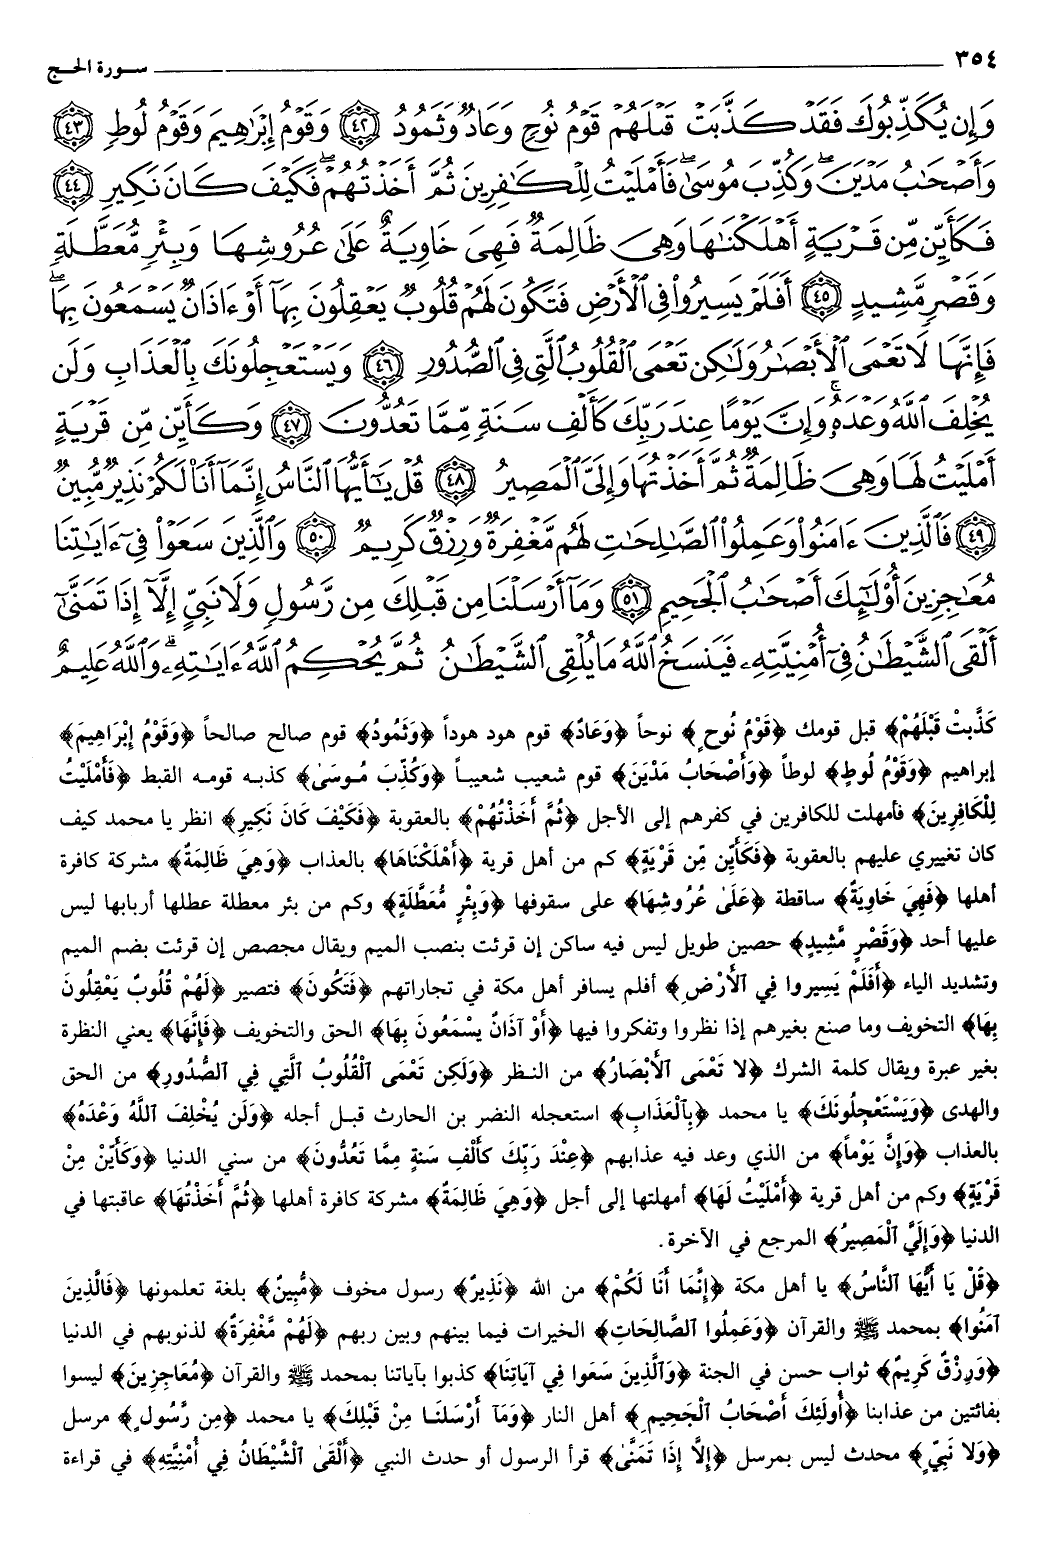 ٣٥٤ سورة الحج
وَإِن يُكَذِّبُوكَ فَقَدْ كَذَّبَتْ قَبْلَهُمْ قَوْمُ نُوحٍ وَعَادٌ وَثَمُودُ ﴿٤٢﴾ وَقَوْمُ إِبْرَاهِيمَ وَقَوْمُ لُوطٍ ﴿٤٣﴾
وَأَصْحَابُ مَدْيَنَ ۖ وَكُذِّبَ مُوسَىٰ فَأَمْلَيْتُ لِلْكَافِرِينَ ثُمَّ أَخَذْتُهُمْ ۖ فَكَيْفَ كَانَ نَكِيرِ ﴿٤٤﴾
فَكَأَيِّن مِّن قَرْيَةٍ أَهْلَكْنَاهَا وَهِيَ ظَالِمَةٌ فَهِيَ خَاوِيَةٌ عَلَىٰ عُرُوشِهَا وَبِئْرٍ مُّعَطَّلَةٍ
وَقَصْرٍ مَّشِيدٍ ﴿٤٥﴾ أَفَلَمْ يَسِيرُوا۟ فِي ٱلْأَرْضِ فَتَكُونَ لَهُمْ قُلُوبٌ يَعْقِلُونَ بِهَآ أَوْ ءَاذَانٌ يَسْمَعُونَ بِهَا ۖ
فَإِنَّهَا لَا تَعْمَى ٱلْأَبْصَـٰرُ وَلَـٰكِن تَعْمَى ٱلْقُلُوبُ ٱلَّتِي فِي ٱلصُّدُورِ ﴿٤٦﴾ وَيَسْتَعْجِلُونَكَ بِٱلْعَذَابِ وَلَن
يُخْلِفَ ٱللَّهُ وَعْدَهُۥ ۚ وَإِنَّ يَوْمًا عِندَ رَبِّكَ كَأَلْفِ سَنَةٍ مِّمَّا تَعُدُّونَ ﴿٤٧﴾ وَكَأَيِّن مِّن قَرْيَةٍ
أَمْلَيْتُ لَهَا وَهِيَ ظَالِمَةٌ ثُمَّ أَخَذْتُهَا وَإِلَيَّ ٱلْمَصِيرُ ﴿٤٨﴾ قُلْ يَـٰٓأَيُّهَا ٱلنَّاسُ إِنَّمَآ أَنَا۠ لَكُمْ نَذِيرٌ مُّبِينٌ
﴿٤٩﴾ فَٱلَّذِينَ ءَامَنُوا۟ وَعَمِلُوا۟ ٱلصَّـٰلِحَـٰتِ لَهُم مَّغْفِرَةٌ وَرِزْقٌ كَرِيمٌ ﴿٥٠﴾ وَٱلَّذِينَ سَعَوْا۟ فِيٓ ءَايَـٰتِنَا
مُعَـٰجِزِينَ أُو۟لَـٰٓئِكَ أَصْحَـٰبُ ٱلْجَحِيمِ ﴿٥١﴾ وَمَآ أَرْسَلْنَا مِن قَبْلِكَ مِن رَّسُولٍ وَلَا نَبِيٍّ إِلَّآ إِذَا تَمَنَّىٰٓ
أَلْقَى ٱلشَّيْطَـٰنُ فِيٓ أُمْنِيَّتِهِۦ فَيَنسَخُ ٱللَّهُ مَا يُلْقِي ٱلشَّيْطَـٰنُ ثُمَّ يُحْكِمُ ٱللَّهُ ءَايَـٰتِهِۦ ۗ وَٱللَّهُ عَلِيمٌ
كَذَّبَتْ قَبْلَهُمْ﴾ قبل قومك ﴿قَوْمُ نُوحٍ﴾ نوحاً ﴿وَعَادٌ﴾ قوم هود هوداً ﴿وَثَمُودُ﴾ قوم صالح صالحاً ﴿وَقَوْمُ إِبْرَاهِيمَ﴾
إبراهيم ﴿وَقَوْمُ لُوطٍ﴾ لوطاً ﴿وَأَصْحَابُ مَدْيَنَ﴾ قوم شعيب شعيباً ﴿وَكُذِّبَ مُوسَىٰ﴾ كذبه قومه القبط ﴿فَأَمْلَيْتُ
لِلْكَافِرِينَ﴾ فأمهلت للكافرين في كفرهم إلى الأجل ﴿ثُمَّ أَخَذْتُهُمْ﴾ بالعقوبة ﴿فَكَيْفَ كَانَ نَكِيرِ﴾ انظر يا محمد كيف
كان تغييري عليهم بالعقوبة ﴿فَكَأَيِّن مِّن قَرْيَةٍ﴾ كم من أهل قرية ﴿أَهْلَكْنَاهَا﴾ بالعذاب ﴿وَهِيَ ظَالِمَةٌ﴾ مشركة كافرة
أهلها ﴿فَهِيَ خَاوِيَةٌ﴾ ساقطة ﴿عَلَىٰ عُرُوشِهَا﴾ على سقوفها ﴿وَبِئْرٍ مُعَطَّلَةٍ﴾ وكم من بئر معطلة عطلها أربابها ليس
عليها أحد ﴿وَقَصْرٍ مَّشِيدٍ﴾ حصين طويل ليس فيه ساكن إن قرئت بنصب الميم ويقال مجصص إن قرئت بضم الميم
وتشديد الياء ﴿أَفَلَمْ يَسِيروا فِي ٱلْأَرْضِ﴾ أفلم يسافر أهل مكة في تجاراتهم ﴿فَتَكُونَ﴾ فتصير ﴿لَهُمْ قُلُوبٌ يَعْقِلُونَ
بِهَا﴾ التخويف وما صنع بغيرهم إذا نظروا وتفكروا فيها ﴿أَوْ آذَانٌ يسْمَعُونَ بِهَا﴾ الحق والتخويف ﴿فَإِنَّهَا﴾ يعني النظرة
بغير عبرة ويقال كلمة الشرك ﴿لا تَعْمَى ٱلأَبْصَارُ﴾ من النظر ﴿وَلَكِن تَعْمَى ٱلْقُلُوبُ ٱلَّتِي فِي ٱلصُّدُورِ﴾ من الحق
والهدى ﴿وَيَسْتَعْجِلُونَكَ﴾ يا محمد ﴿بِٱلْعَذَابِ﴾ استعجله النضر بن الحارث قبل أجله ﴿وَلَن يُخْلِفَ ٱللَّهُ وَعْدَهُ﴾
بالعذاب ﴿وَإِنَّ يَوْماً﴾ من الذي وعد فيه عذابهم ﴿عِنْدَ رَبِّكَ كَأَلْفِ سَنةٍ مِمَّا تَعُدُّونَ﴾ من سني الدنيا ﴿وَكَأَيِّنْ مِنْ
قَرْيَةٍ﴾ وكم من أهل قرية ﴿أَمْلَيْتُ لَهَا﴾ أمهلتها إلى أجل ﴿وَهِيَ ظَالِمَةٌ﴾ مشركة كافرة أهلها ﴿ثُمَّ أَخَذْتُهَا﴾ عاقبتها في
الدنيا ﴿وَإِلَيَّ ٱلْمَصِيرُ﴾ المرجع في الآخرة.
﴿قُلْ يَا أَيُّهَا النَّاسُ﴾ يا أهل مكة ﴿إِنَّمَا أَنَا لَكُمْ﴾ من الله ﴿نَذِيرٌ﴾ رسول مخوف ﴿مُّبِينٌ﴾ بلغة تعلمونها ﴿فَالَّذِينَ
آمَنُوا﴾ بمحمد ﷺ والقرآن ﴿وَعَمِلُوا ٱلصَّالِحَاتِ﴾ الخيرات فيما بينهم وبين ربهم ﴿لَهُمْ مَّغْفِرَةٌ﴾ لذنوبهم في الدنيا
﴿وَرِزْقٌ كَرِيمٌ﴾ ثواب حسن في الجنة ﴿وَالَّذِينَ سَعَوا فِي آيَاتِنَا﴾ كذبوا بآياتنا بمحمد ﷺ والقرآن ﴿مُعَاجِزِينَ﴾ ليسوا
بفائتين من عذابنا ﴿أُولَئِكَ أَصْحَابُ ٱلْجَحِيمِ﴾ أهل النار ﴿وَمَا أَرْسَلنَا مِنْ قَبْلِكَ﴾ يا محمد ﴿مِن رَّسُولٍ﴾ مرسل
﴿وَلا نَبِيٍّ﴾ محدث ليس بمرسل ﴿إِلَّا إِذَا تَمَنَّىٰ﴾ قرأ الرسول أو حدث النبي ﴿أَلْقَىٰ ٱلشَّيْطَانُ فِي أُمْنِيَّتِهِ﴾ في قراءة